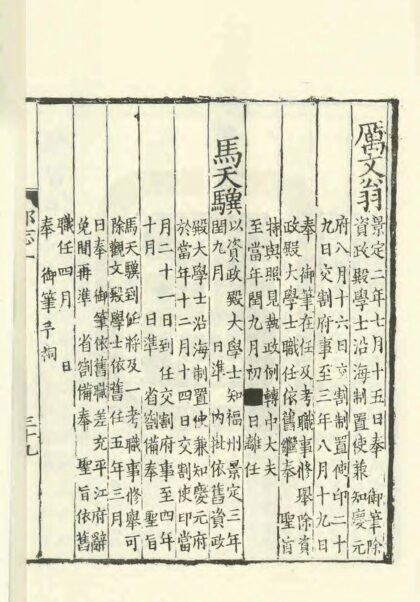 厲文翁
景定二年七月十五日奉　御筆除
資政殿學士沿海制置使兼知慶元
府八月十六日交割制置使印二十
九日交割府事至三年八月十九日
奉　御筆在任及考職事修舉除資
政殿大學士職任依舊繼奉　聖旨
特與照見執政例轉中大夫
至當年閏九月初■日離任
馬天驥
以資政殿大學士知福州景定三年
閏九月　日準　內批依舊資政
殿大學士沿海制置使兼知慶元府
於當年十二月十四日交割使印當
月二十一日到任交割府事至四年
十月　日準　省劄備奉　聖旨
馬天驥到任將及一考職事修舉可
除觀文殿學士依舊任五年三月
日奉　御筆依舊職差充平江府辭
免間再準　省劄備奉　聖旨依舊
職任四月　日
奉　御筆予祠
郡志一
三十九